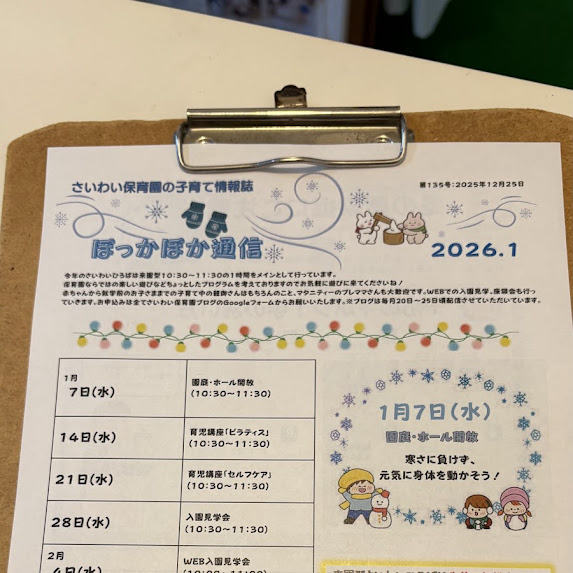 さいわい保育園の子育て情報誌
第135号:2025年12月25日
ぽっかぽか通信
2026.1
今年のさいわいひろばは来園型10:30~11:30の1時間をメインとして行っています。
保育園ならではの楽しい遊びなどちょっとしたプログラムを考えておりますのでお気軽に遊びに来てくださいね!
赤ちゃんから就学前のお子さままでの子育て中の親御さんはもちろんのこと、マタニティーのプレママさんも大歓迎です。WEBでの入園見学、座談会も行っ
ていきます。お申込みは全てさいわい保育園ブログのGoogleフォームからお願いいたします。※ブログは毎月20日~25日頃配信させていただいています。
1月
7日(水)
園庭・ホール開放
(10:30~11:30)
14日(水)
育児講座「ピラティス」
(10:30~11:30)
21日(水)
育児講座「セルフケア」
(10:30~11:30)
28日(水)
入園見学会
(10:30~11:30)
2月
4日(水)
WEB入園見学会
1月7日(水)
園庭・ホール開放
寒さに負けず、
元気に身体を動かそう!